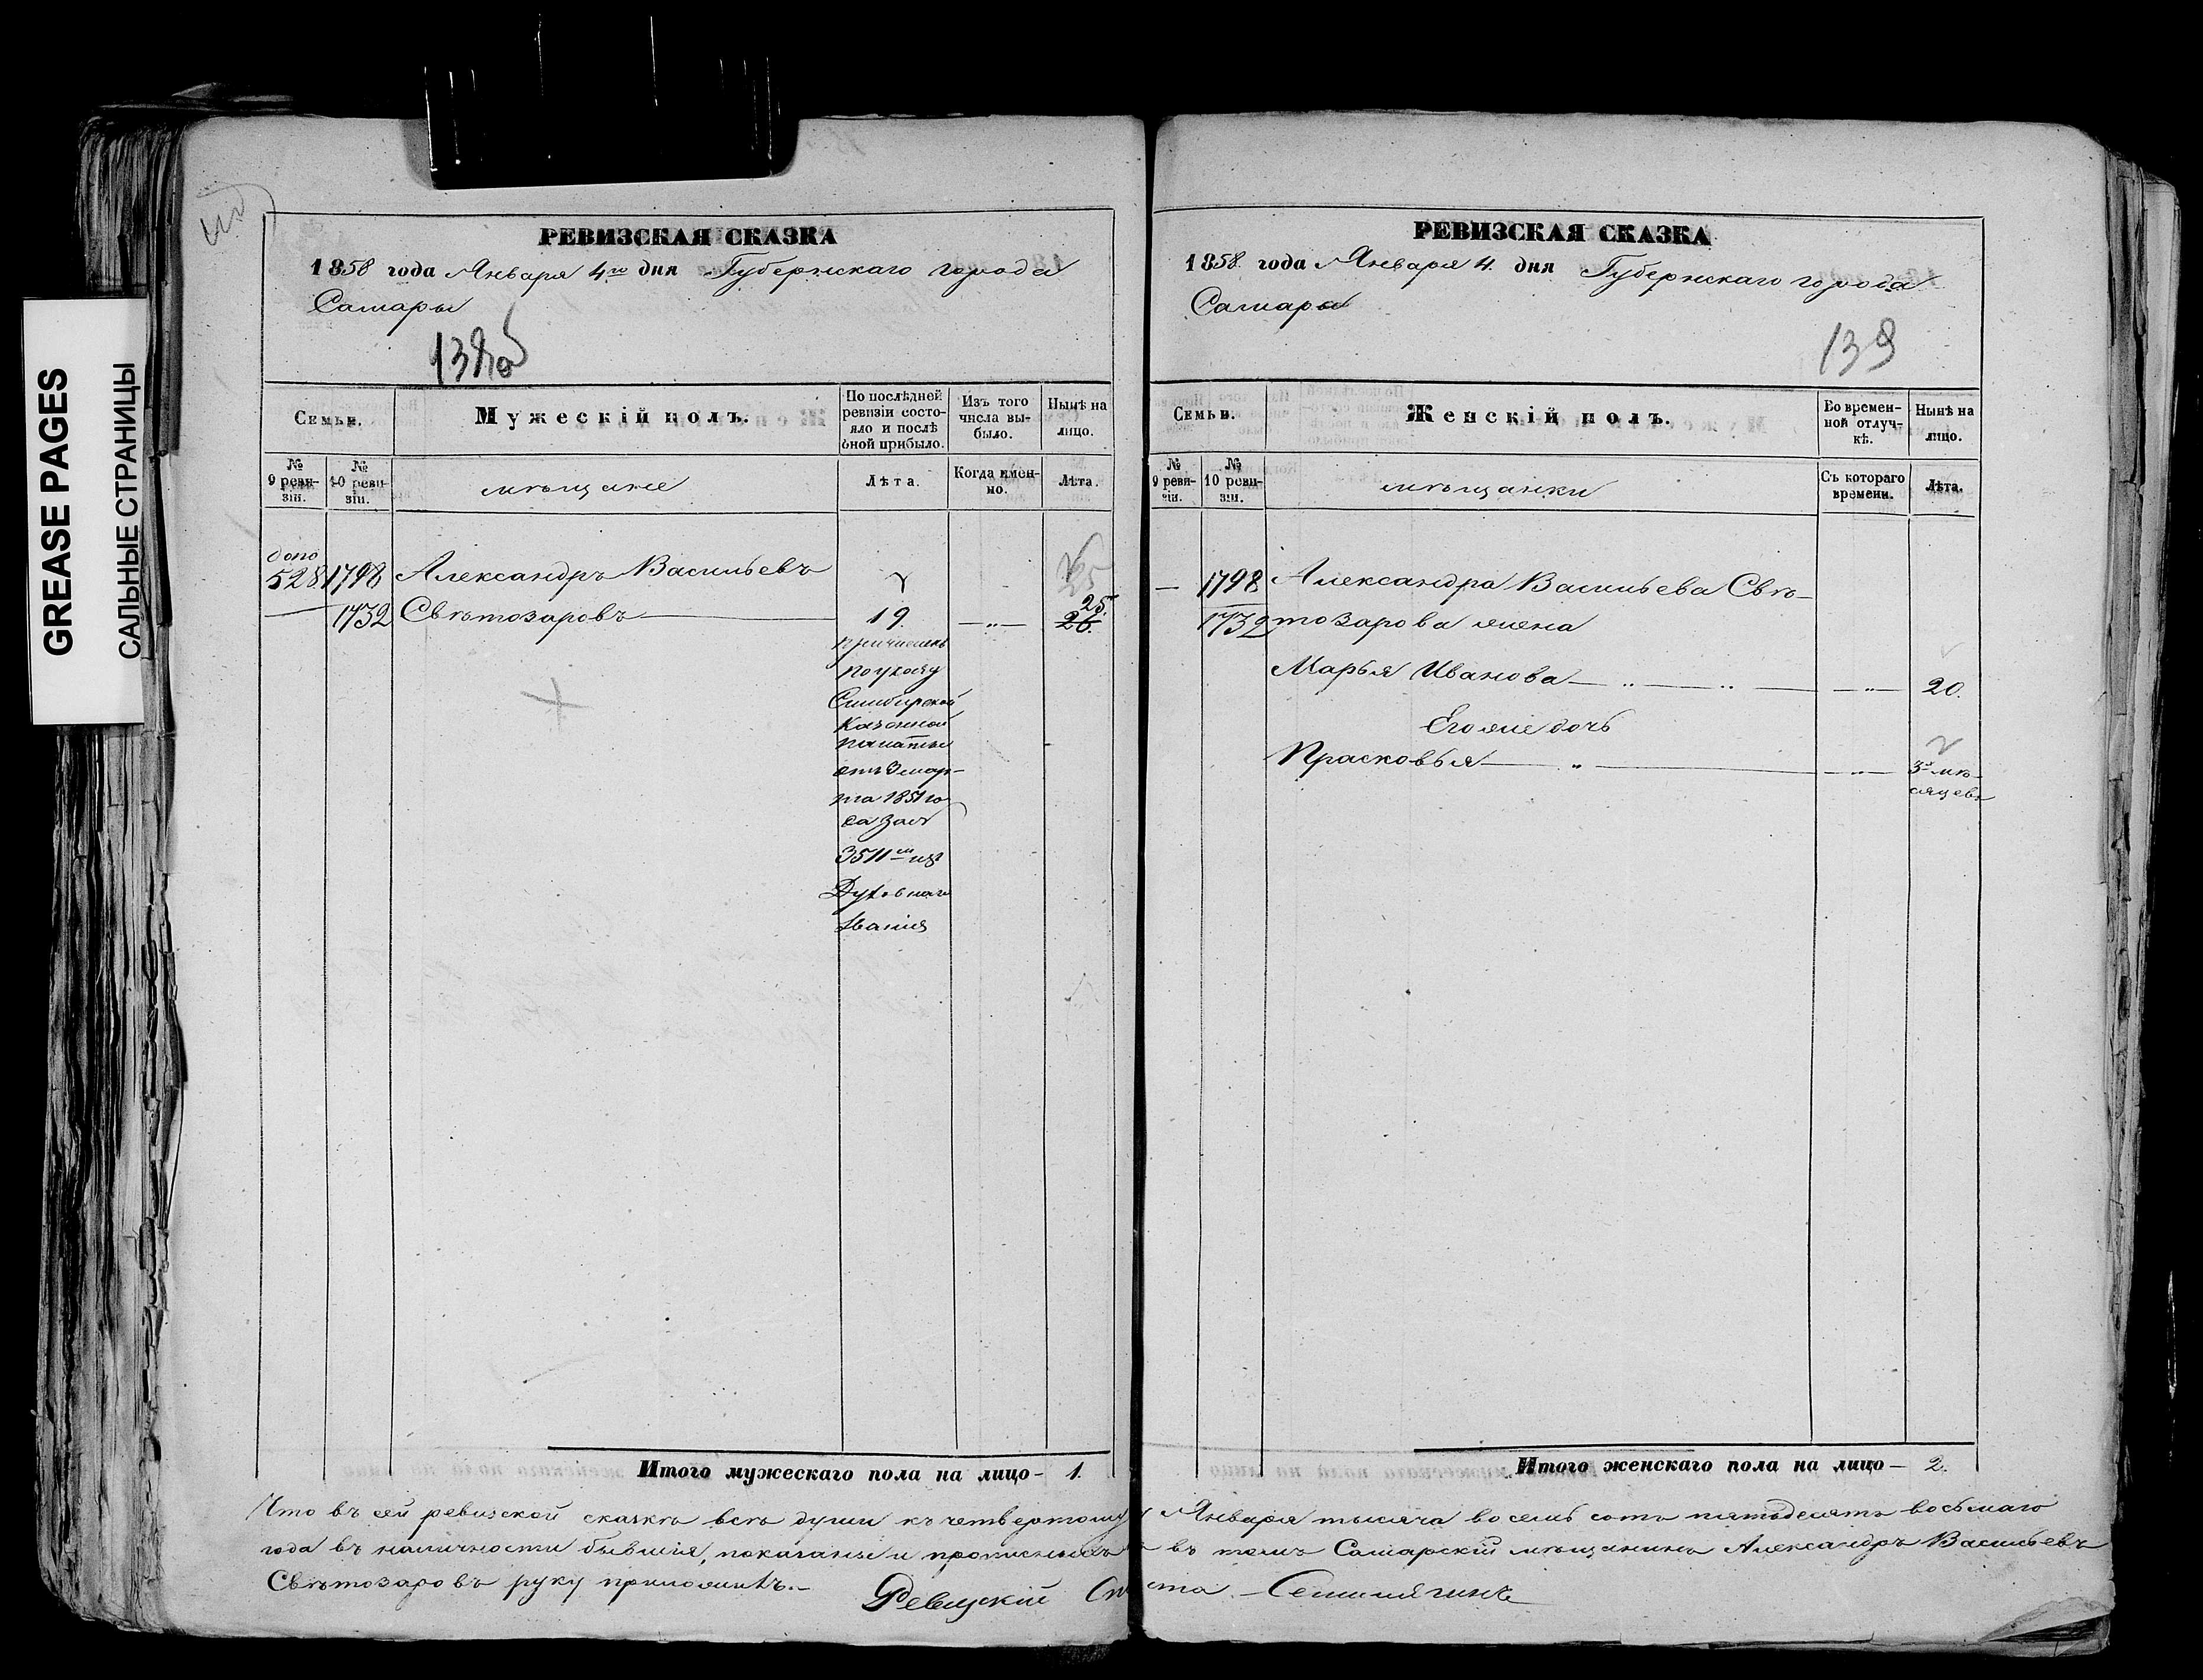 GREASE PAGES
САЛЬНЫЕ СТРАНИЦЫ
РЕВИЗСКАЯ СКАЗКА
1858 года Января 4го дня Губернскаго города
Самары
138об
Семьи.
Мужескій полъ.
По послѣдней ревизіи состо-
яло и послѣ
оной прибыло.
Изъ того
числа вы-
было.
Нынѣ на
лицо.
№
9 реви-
зіи.
№
10 реви-
зіи.
мѣщане
Лѣта.
Когда имен-
но.
Лѣта.
допо
528 1798 Александръ Васильевъ
— 1732 Свѣтозаровъ — 19. — „ — 25.
26.
причисленъ
по указу
Симбирской
Казенной
палаты
отъ 3 мар-
та 1851 го
да за №
3511м изъ
Духовнаго
званія
Итого мужескаго пола на лицо — 1.
РЕВИЗСКАЯ СКАЗКА
1858 года Января 4. дня Губернскаго города
Самары
139
Семьи.
Женскій полъ.
Во времен-
ной отлуч-
кѣ.
Нынѣ на
лицо.
№
9 реви-
зіи.
№
10 реви-
зіи.
мѣщанки
Съ котораго
времени.
Лѣта.
— 1798 Александра Васильева Свѣ-
1732 тозарова жена
Марья Иванова — „ — „ — — „ — 20.
Его же дочь
Прасковья — „ — — „ — 3х мѣ-
сяцевъ
Итого женскаго пола на лицо — 2.
Что въ сей ревизской сказкѣ всѣ души къ четвертому Января тысяча восемь сотъ пятьдесятъ восьмаго
года въ наличности бывшія, показаны и прописныхъ въ томъ Самарскій мѣщанинъ Александръ Васильевъ
Свѣтозаровъ руку приложилъ. —
Ревизскій